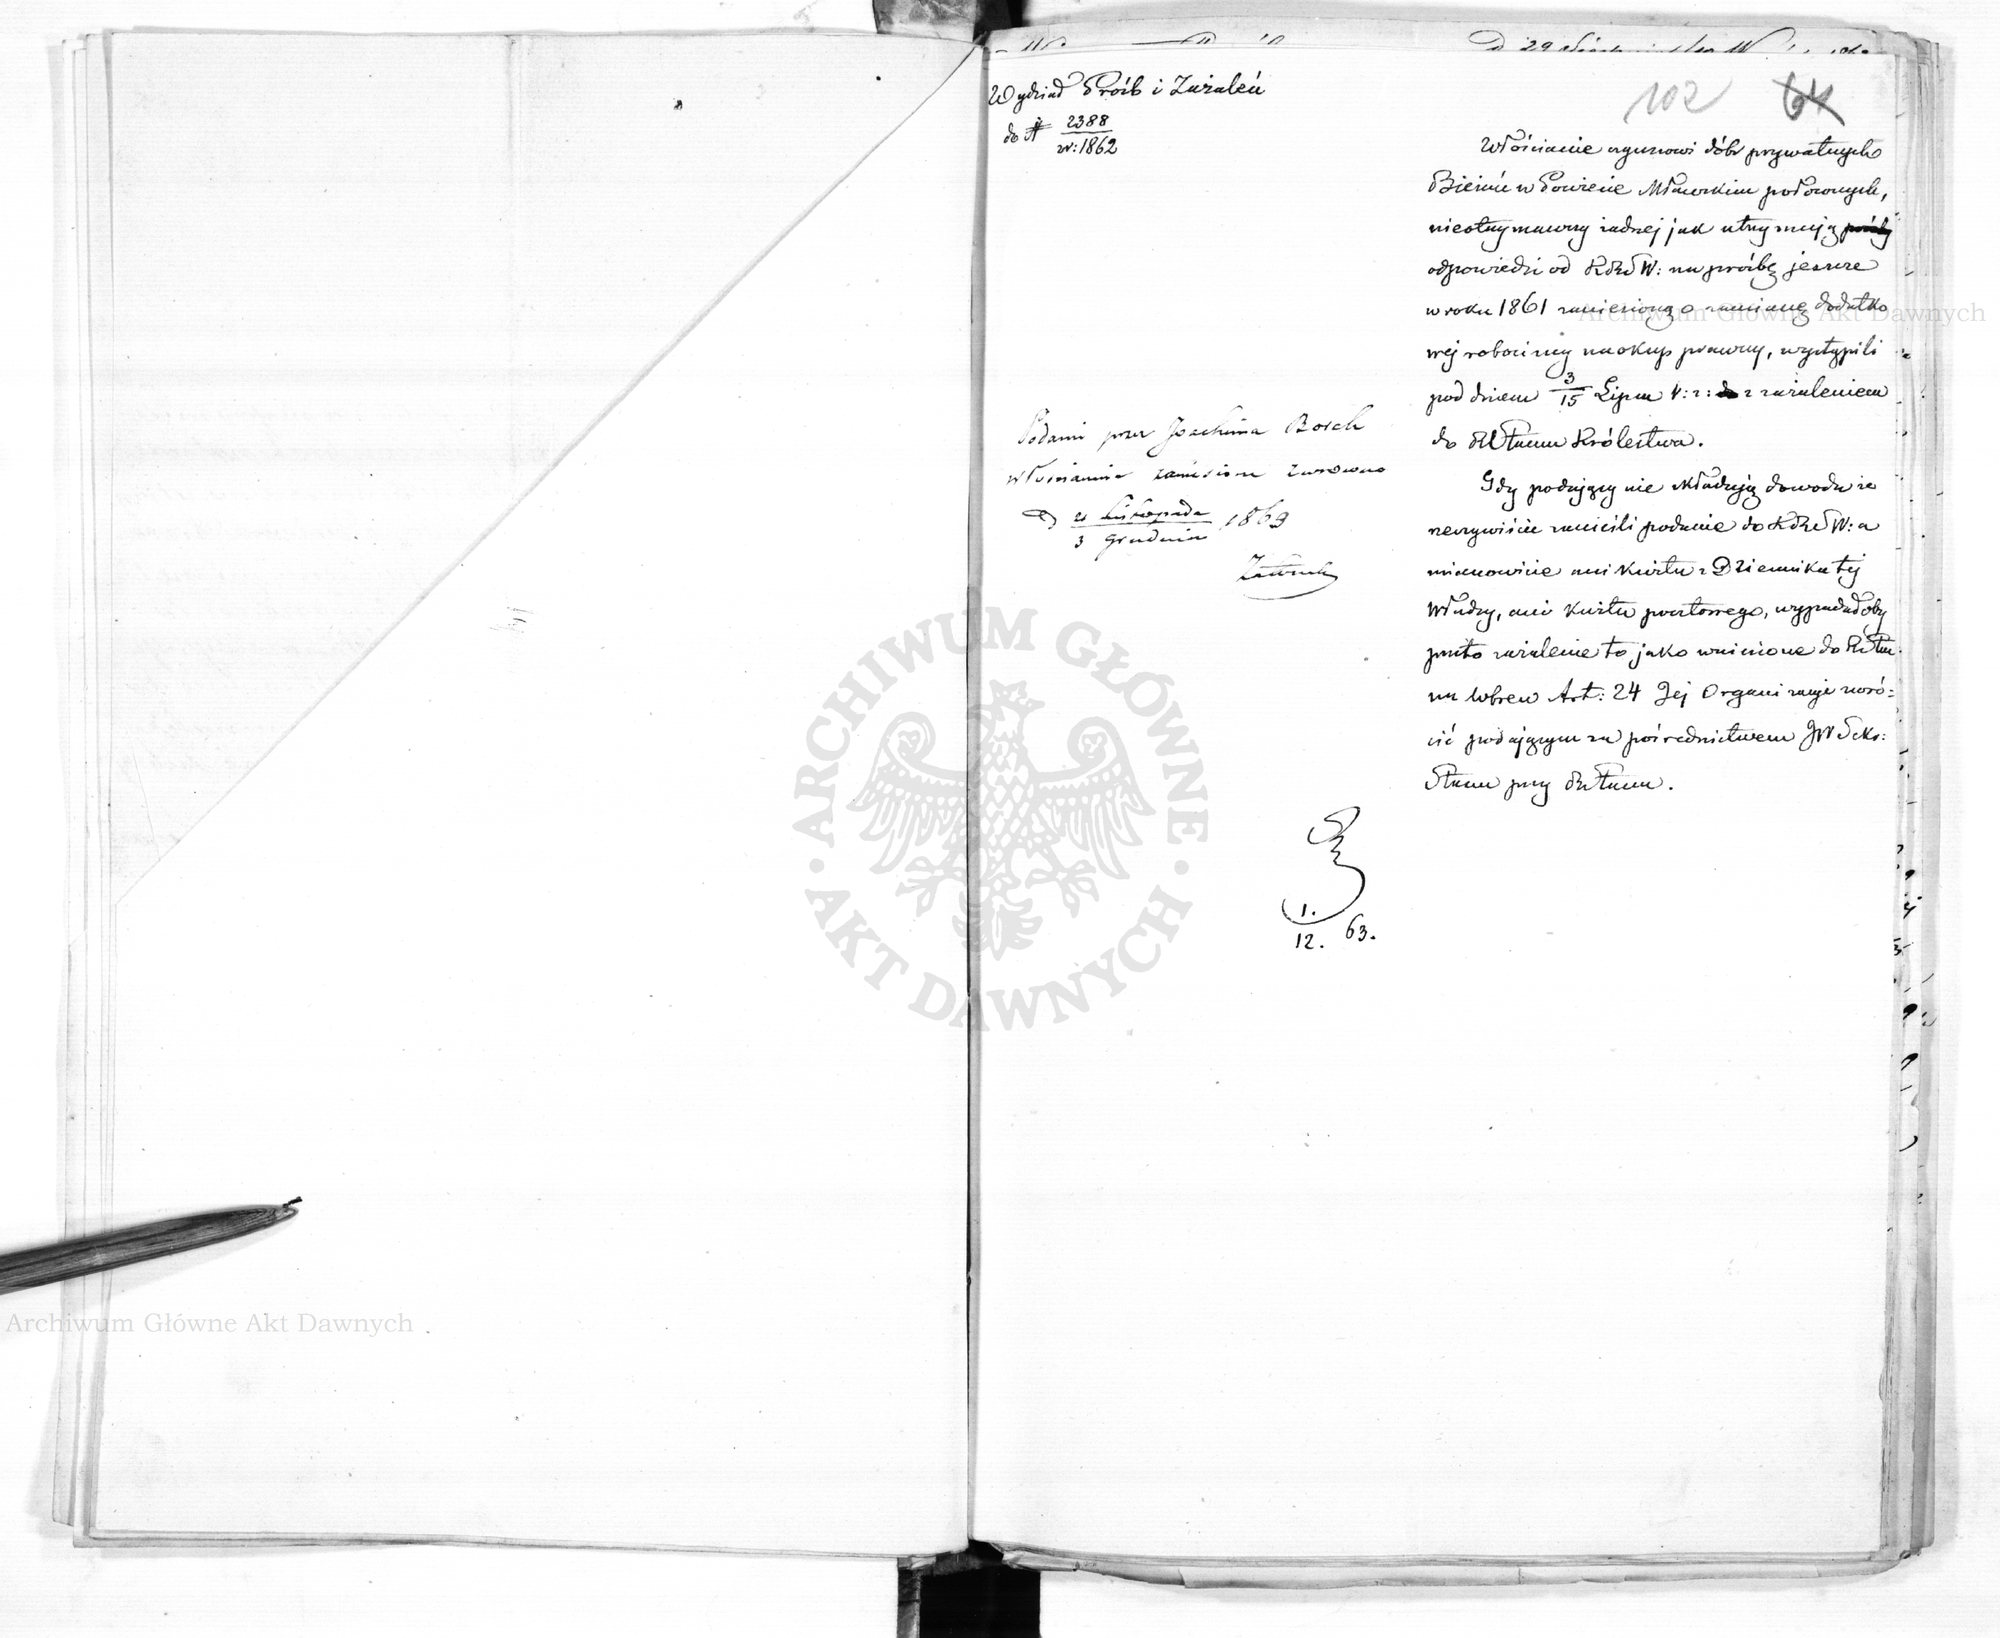 Wydział Próśb i Zażaleń
do N 2388
w: 1862
102 64
Włościanie czynszowi dóbr prywatnych
w Powiecie Mławskim położonych,
nieotrzymawszy żadnej jak utrzymują prośby
odpowiedzi od KRSW: na prośbę jeszcze
w roku 1861 zaniesioną o zamianę dodatko
wéj robocizny na okup prawny, wystąpili
pod dniem 3/15 Lipca b: r: z zażaleniem
do RStanu Królestwa.
Gdy podający nie składają dowodu że
rzeczywiście zanieśli podanie do KRSW: a
mianowicie ani kwitu z Dziennika tej
Władzy, ani kwitu pocztowego, wypadałoby
przeto zażalenie to jako wniesione do RSta
nu wbrew Art: 24 Jej Organizacyi zwró=
cić podającym za pośrednictwem JW Sekr:
Stanu przy RStanu.
Podanie przez Joachima Borch
Włościanina zaniesione zwrócono
D 21 Listopada
3 Grudnia 1863
1.
12. 63.
ARCHIWUM GŁÓWNE AKT DAWNYCH
Archiwum Główne Akt Dawnych
Archiwum Główne Akt Dawnych